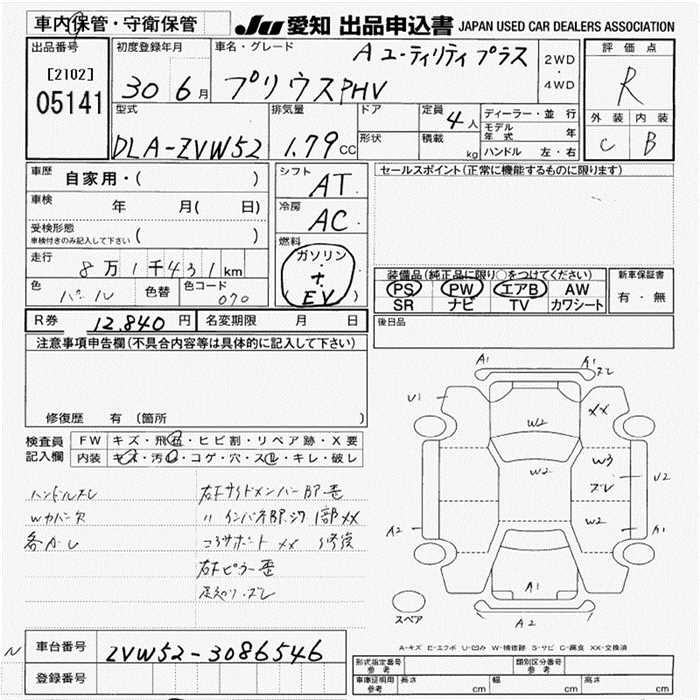 車内保管・守衛保管
JU 愛知 出品申込書 JAPAN USED CAR DEALERS ASSOCIATION
出品番号 [2102] 05141
初度登録年月 30 6月
車名・グレード A ユーティリティ プラス
プリウスPHV
2WD ・ 4WD
評価点 R
外装 内装
C B
型式 DLA-ZVW52
排気量 1.79 CC
ドア
形状
定員 4人
積載 kg
ディーラー・並行
モデル年式 年
ハンドル 左・右
車歴 自家用・( )
車検 年 月( 日)
受検形態 ( )
車検付きのみ記入して下さい
走行 8万1千431km
色 パール 色替 色コード 070
シフト AT
冷房 AC
燃料 ガソリン + EV
セールスポイント(正常に機能するものに限ります)
装備品(純正品に限り○をつけてください)
PS PW エアB AW
SR ナビ TV カワシート
新車保証書
有・無
R券 12,840円 名変期限 月 日
後日品
注意事項申告欄(不具合内容等は具体的に記入して下さい)
修復歴 有 (箇所 )
検査員記入欄
FW キズ・飛石・ヒビ割・リペア跡・X要
内装 キズ・汚レ・コゲ・穴・スレ・キレ・破レ
ハンドルスレ
Wカバー欠
各A・L
右Fサイドメンバー部歪
〃 インパネ部 1部XX
コアサポート XX 修復
右Fピラー歪
A1
A1
ズレ
U1
XX
W2
W2
W3
ズレ
U2
W2
A1
A2
A1
A2
スペア
A-キズ E-エクボ U-凹み W-補修跡 S-サビ C-腐食 XX-交換済
N
車台番号 ZVW52-3086546
登録番号
形式指定番号 参考
類別区分番号 参考
車庫証明用 参考 長さ cm 幅 cm 高さ cm